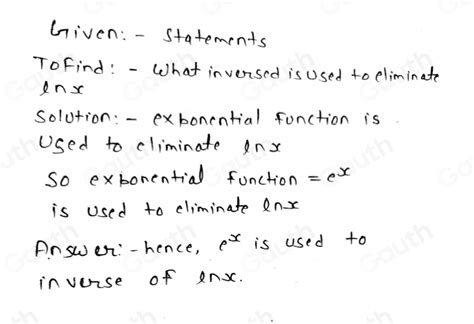 Given: - Statements
To Find: - What inversed is used to eliminate
ln x
Solution: - exponential function is
Used to eliminate ln x
So exponential function = e^x
is used to eliminate ln x
Answer: - hence, e^x is used to
inverse of ln x.